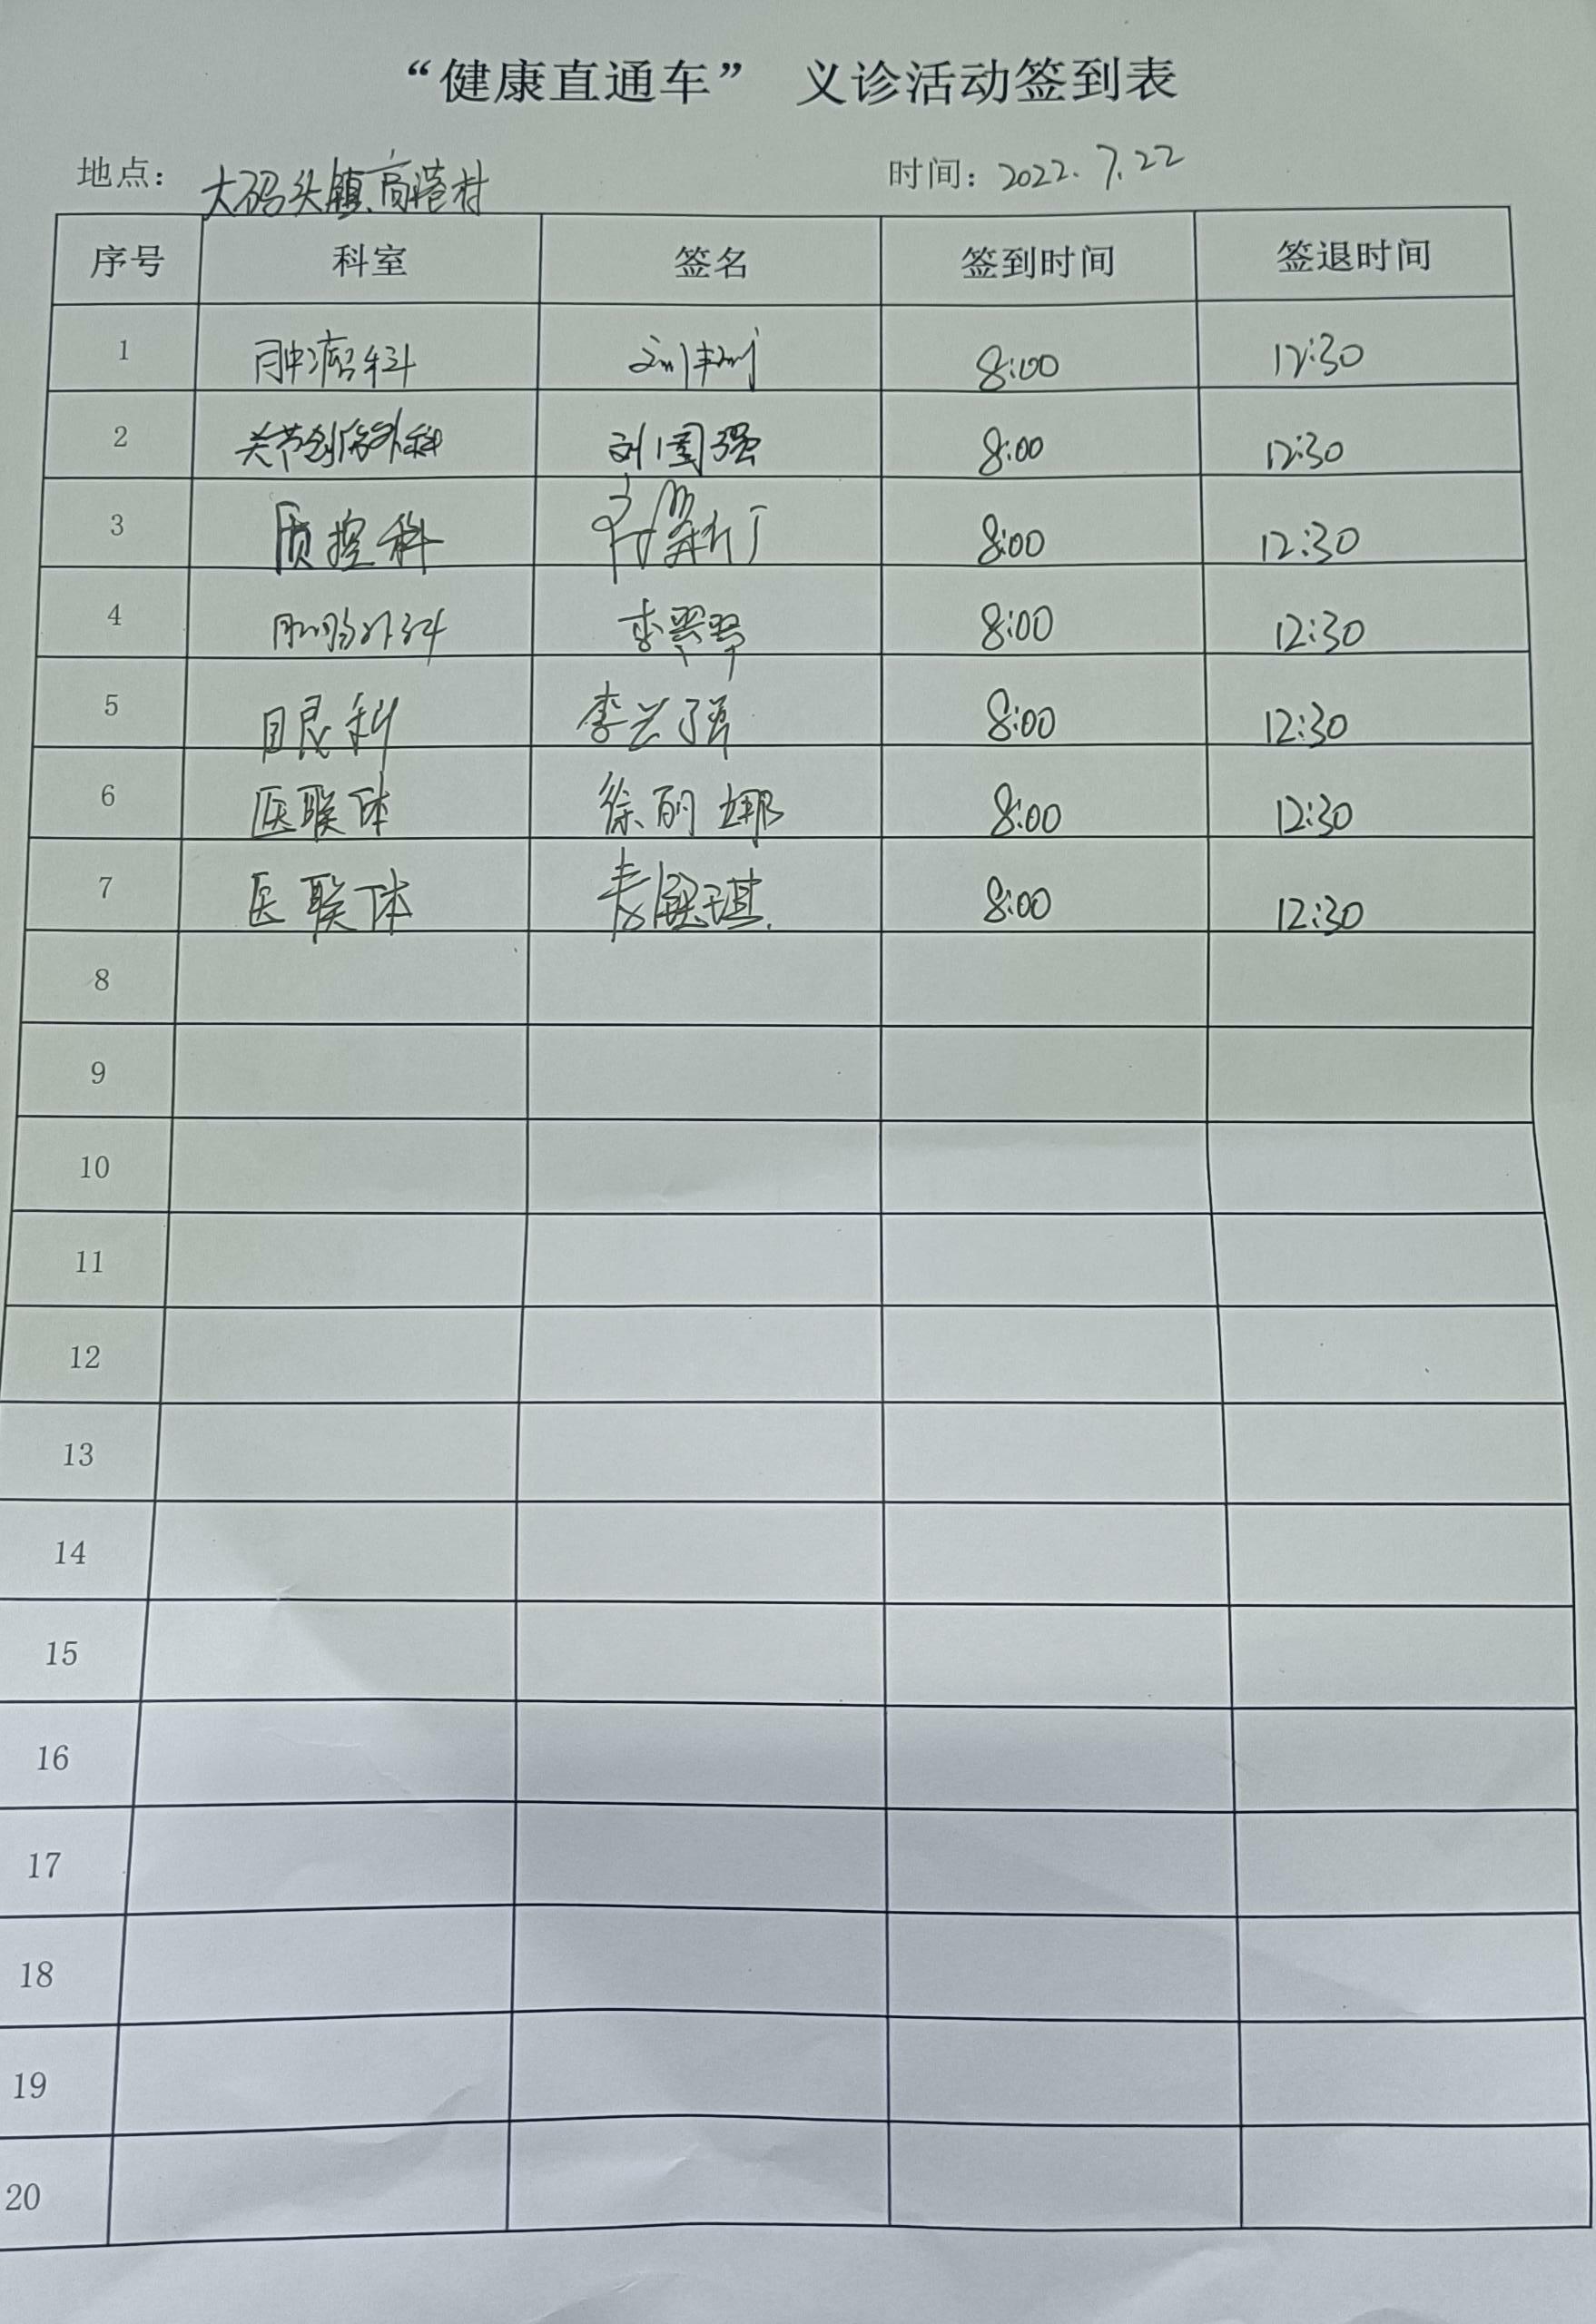 “健康直通车” 义诊活动签到表
地点： 大码头镇高港村 时间：2022.7.22
序号 科室 签名 签到时间 签退时间
1 肿瘤科 8:00 12:30
2 关节创伤外科 刘国强 8:00 12:30
3 质控科 8:00 12:30
4 肛肠外科 李翠翠 8:00 12:30
5 眼科 李兴强 8:00 12:30
6 医联体 徐丽娜 8:00 12:30
7 医联体 8:00 12:30
8
9
10
11
12
13
14
15
16
17
18
19
20